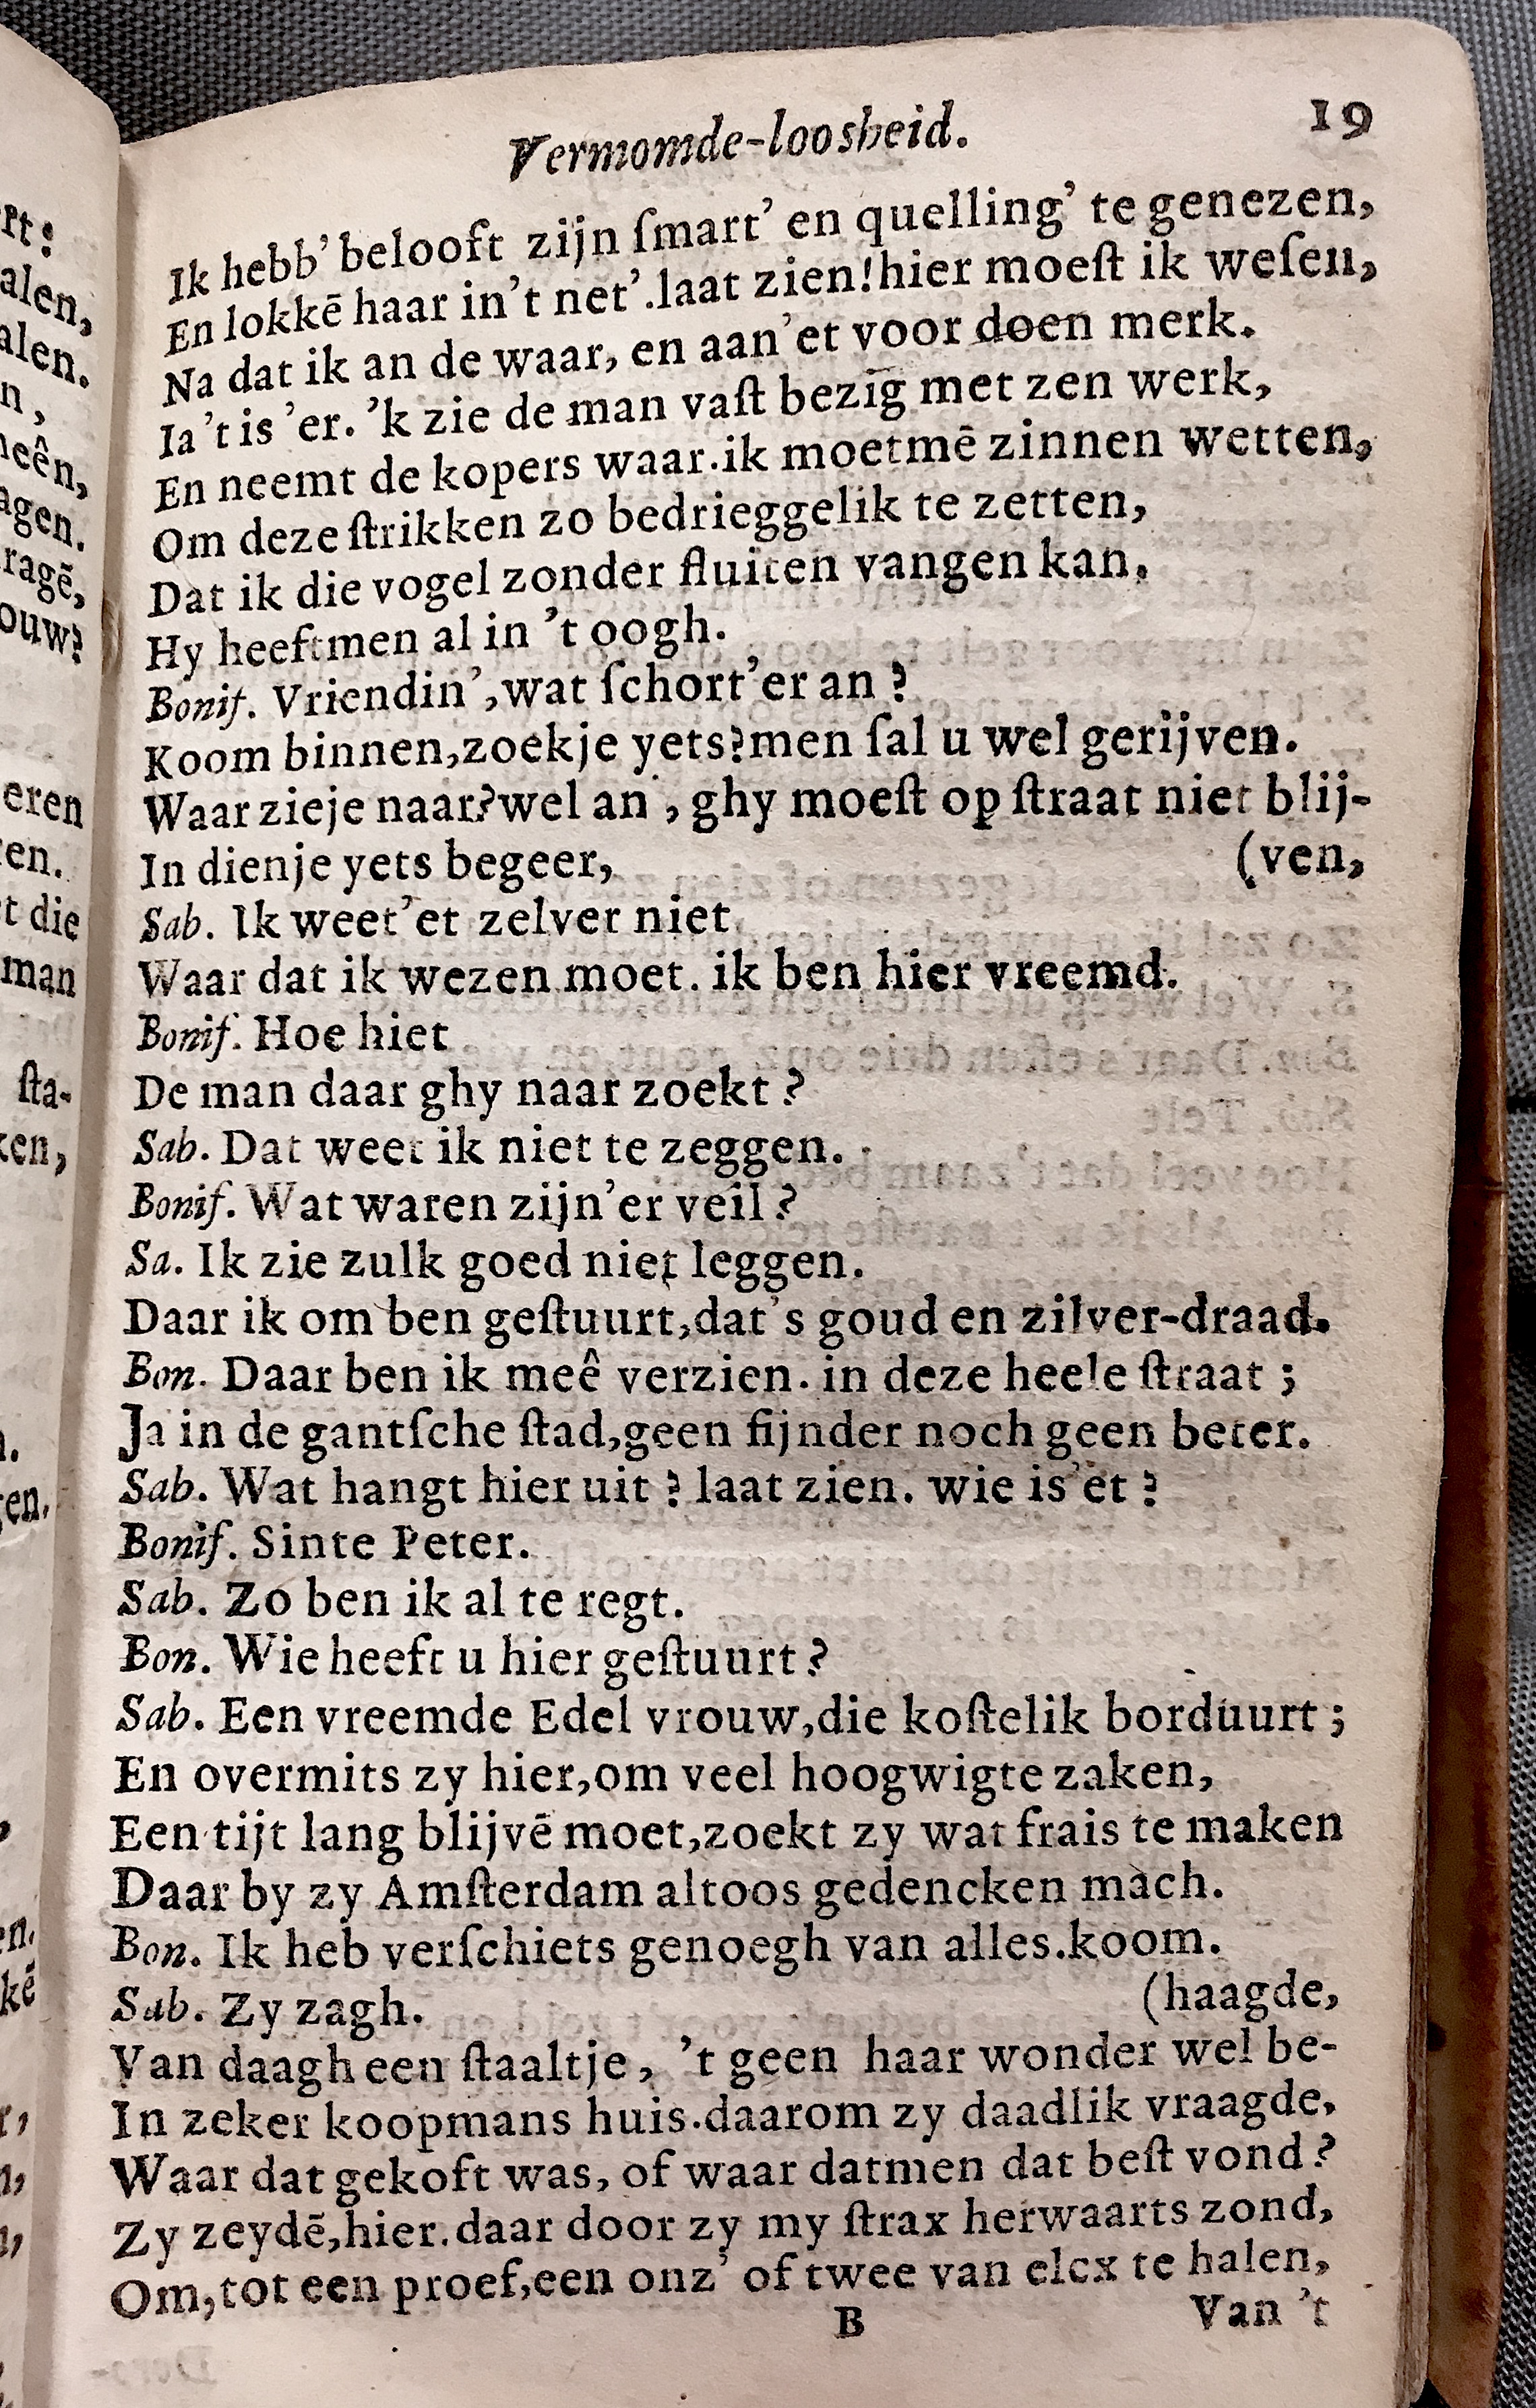 Vermomde-loosheid. 19
Ik hebb' belooft zijn ſmart' en quelling' te genezen,
En lokkē haar in't net'.laat zien!hier moeſt ik weſen,
Na dat ik an de waar, en aan'et voor doen merk.
Ia 't is 'er. 'k zie de man vaſt bezig met zen werk,
En neemt de kopers waar.ik moetmē zinnen wetten,
Om deze ſtrikken zo bedrieggelik te zetten,
Dat ik die vogel zonder fluiten vangen kan.
Hy heeftmen al in 't oogh.
Bonif. Vriendin',wat ſchort'er an ?
Koom binnen,zoekje yets?men ſal u wel gerijven.
Waar zieje naar?wel an , ghy moeſt op ſtraat niet blij-
In dienje yets begeer, (ven,
Sab. Ik weet'et zelver niet
Waar dat ik wezen moet. ik ben hier vreemd.
Bonif. Hoe hiet
De man daar ghy naar zoekt ?
Sab. Dat weet ik niet te zeggen.
Bonif. Wat waren zijn'er veil ?
Sa. Ik zie zulk goed niet leggen.
Daar ik om ben geſtuurt,dat's goud en zilver-draad.
Bon. Daar ben ik meê verzien. in deze heele ſtraat ;
Ja in de gantſche ſtad,geen fijnder noch geen beter.
Sab. Wat hangt hier uit ? laat zien. wie is'et ?
Bonif. Sinte Peter.
Sab. Zo ben ik al te regt.
Bon. Wie heeft u hier geſtuurt ?
Sab. Een vreemde Edel vrouw,die koſtelik borduurt ;
En overmits zy hier,om veel hoogwigte zaken,
Een tijt lang blijvē moet,zoekt zy wat frais te maken
Daar by zy Amſterdam altoos gedencken mach.
Bon. Ik heb verſchiets genoegh van alles.koom.
Sab. Zy zagh. (haagde,
Van daagh een ſtaaltje, 't geen haar wonder wel be-
In zeker koopmans huis.daarom zy daadlik vraagde,
Waar dat gekoft was, of waar datmen dat beſt vond ?
Zy zeydē,hier.daar door zy my ſtrax herwaarts zond,
Om,tot een proef,een onz' of twee van elcx te halen,
B Van 't